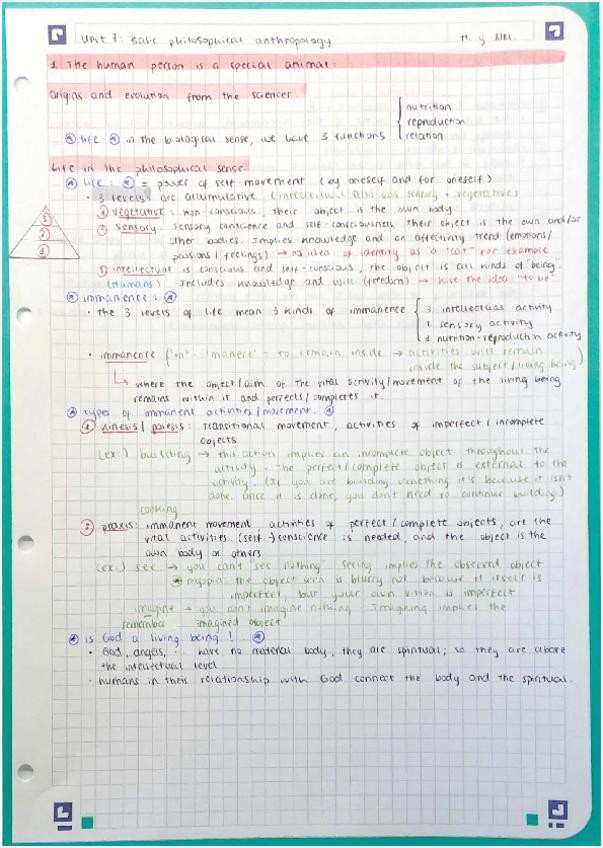 Unit 7: Basic philosophical anthropology
H. y NM.
1. The human person is a special animal:
origins and evolution from the sciencer:
life: in the biological sense, we have 3 functions
nutrition
reproduction
relation
Life in the philosophical sense.
life: = power of self-movement (by oneself and for oneself)
• 3 levels: are accumulative (intellectual also has sensory + vegetative)
1 vegetative: non-conscious, their object is the own body
2 sensory: sensory conscience and self-consciousness, their object is the own and/or
other bodies. Implies knowledge and an affectivity trend (emotions/
passions/feelings) → no idea of identity as a "cat" for example
3 intellectual is conscious and self-conscious, the object is all kinds of "being"
(Humans) Includes knowledge and will (freedom) → have the idea "to be"
3
2
1
immanence:
• the 3 levels of life mean 3 kinds of immanence
3 intellectual activity
2 sensory activity
1 nutrition-reproduction activity
• immanence ("in" "manere" = to remain inside → activities will remain
inside the subject/living being)
↳ where the object/aim of the vital activity/movement of the living being
remains within it and perfects/completes it.
Types of immanent activities/movement.
1 kinesis/poiesis: transitional movement, activities of imperfect/incomplete
objects
(ex:) building → this action implies an incomplete object throughout the
activity. The perfect/complete object is external to the
activity. (If you are building something it's because it isn't
done. Once it is done, you don't need to continue building)
cooking
2 praxis: immanent movement, activities of perfect/complete objects, are the
vital activities. (self-)conscience is needed, and the object is the
own body or others.
(ex:) see → you can't "see nothing" seeing implies the observed object
myopia: the object seen is blurry not because it itself is
imperfect, but your own vision is imperfect
imagine → you can't imagine nothing. Imagining implies the
remember imagined object
is God a living being?
• God, angels, ... have no material body, they are spiritual; so they are above
the intellectual level
• humans in their relationship with God connect the body and the spiritual.